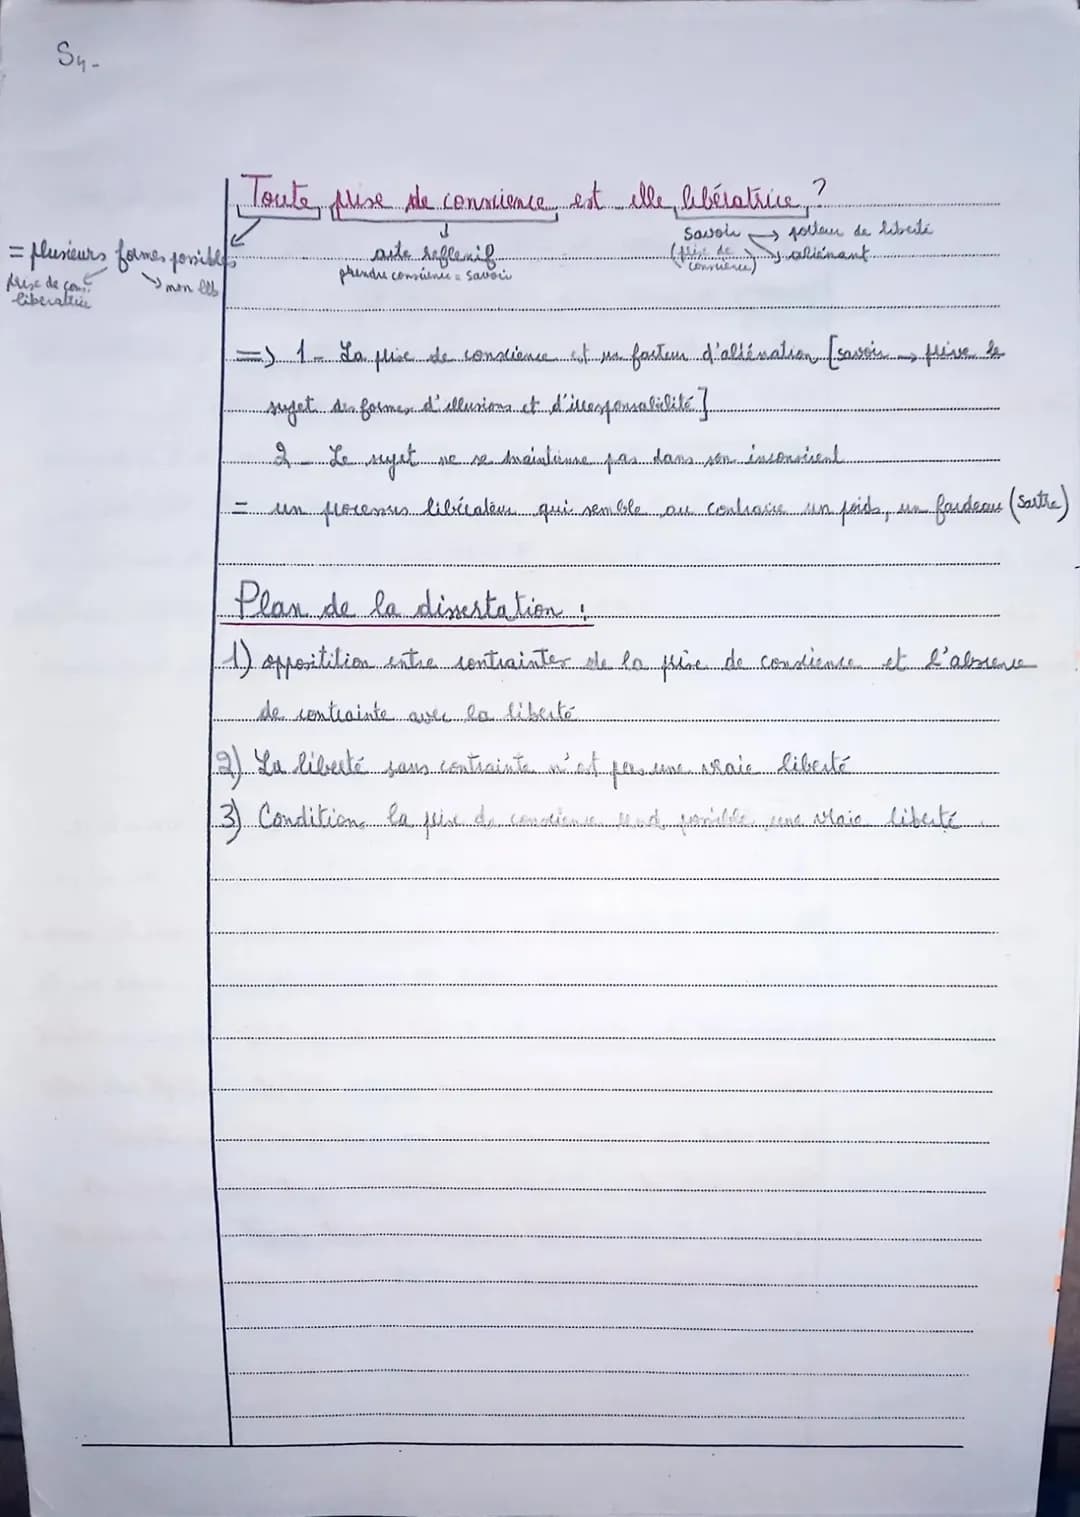 S4-
Toute prise de conscience est elle libératrice ?
= plusieurs formes possibles
prise de cons. libératrice
non lib
acte reflexif
prendre conscience = savoir
Savoir → porteur de liberté
(prise de conscience) ↘ aliénant
=> 1- La prise de conscience est un facteur d'aliénation [savoir → prive le
sujet des formes d'illusions et d'irresponsabilité]
2- Le sujet ne se maintienne pas dans son inconscient
= un processus libérateur qui semble au contraire un poids, un fardeau (Sartre)
Plan de la dissestation :
1) opposition entre contraintes de la prise de conscience et l'absence
de contrainte avec la liberté
2) La liberté sans contrainte n'est pas une vraie liberté
3) Condition la prise de conscience rend possible une vraie liberté.